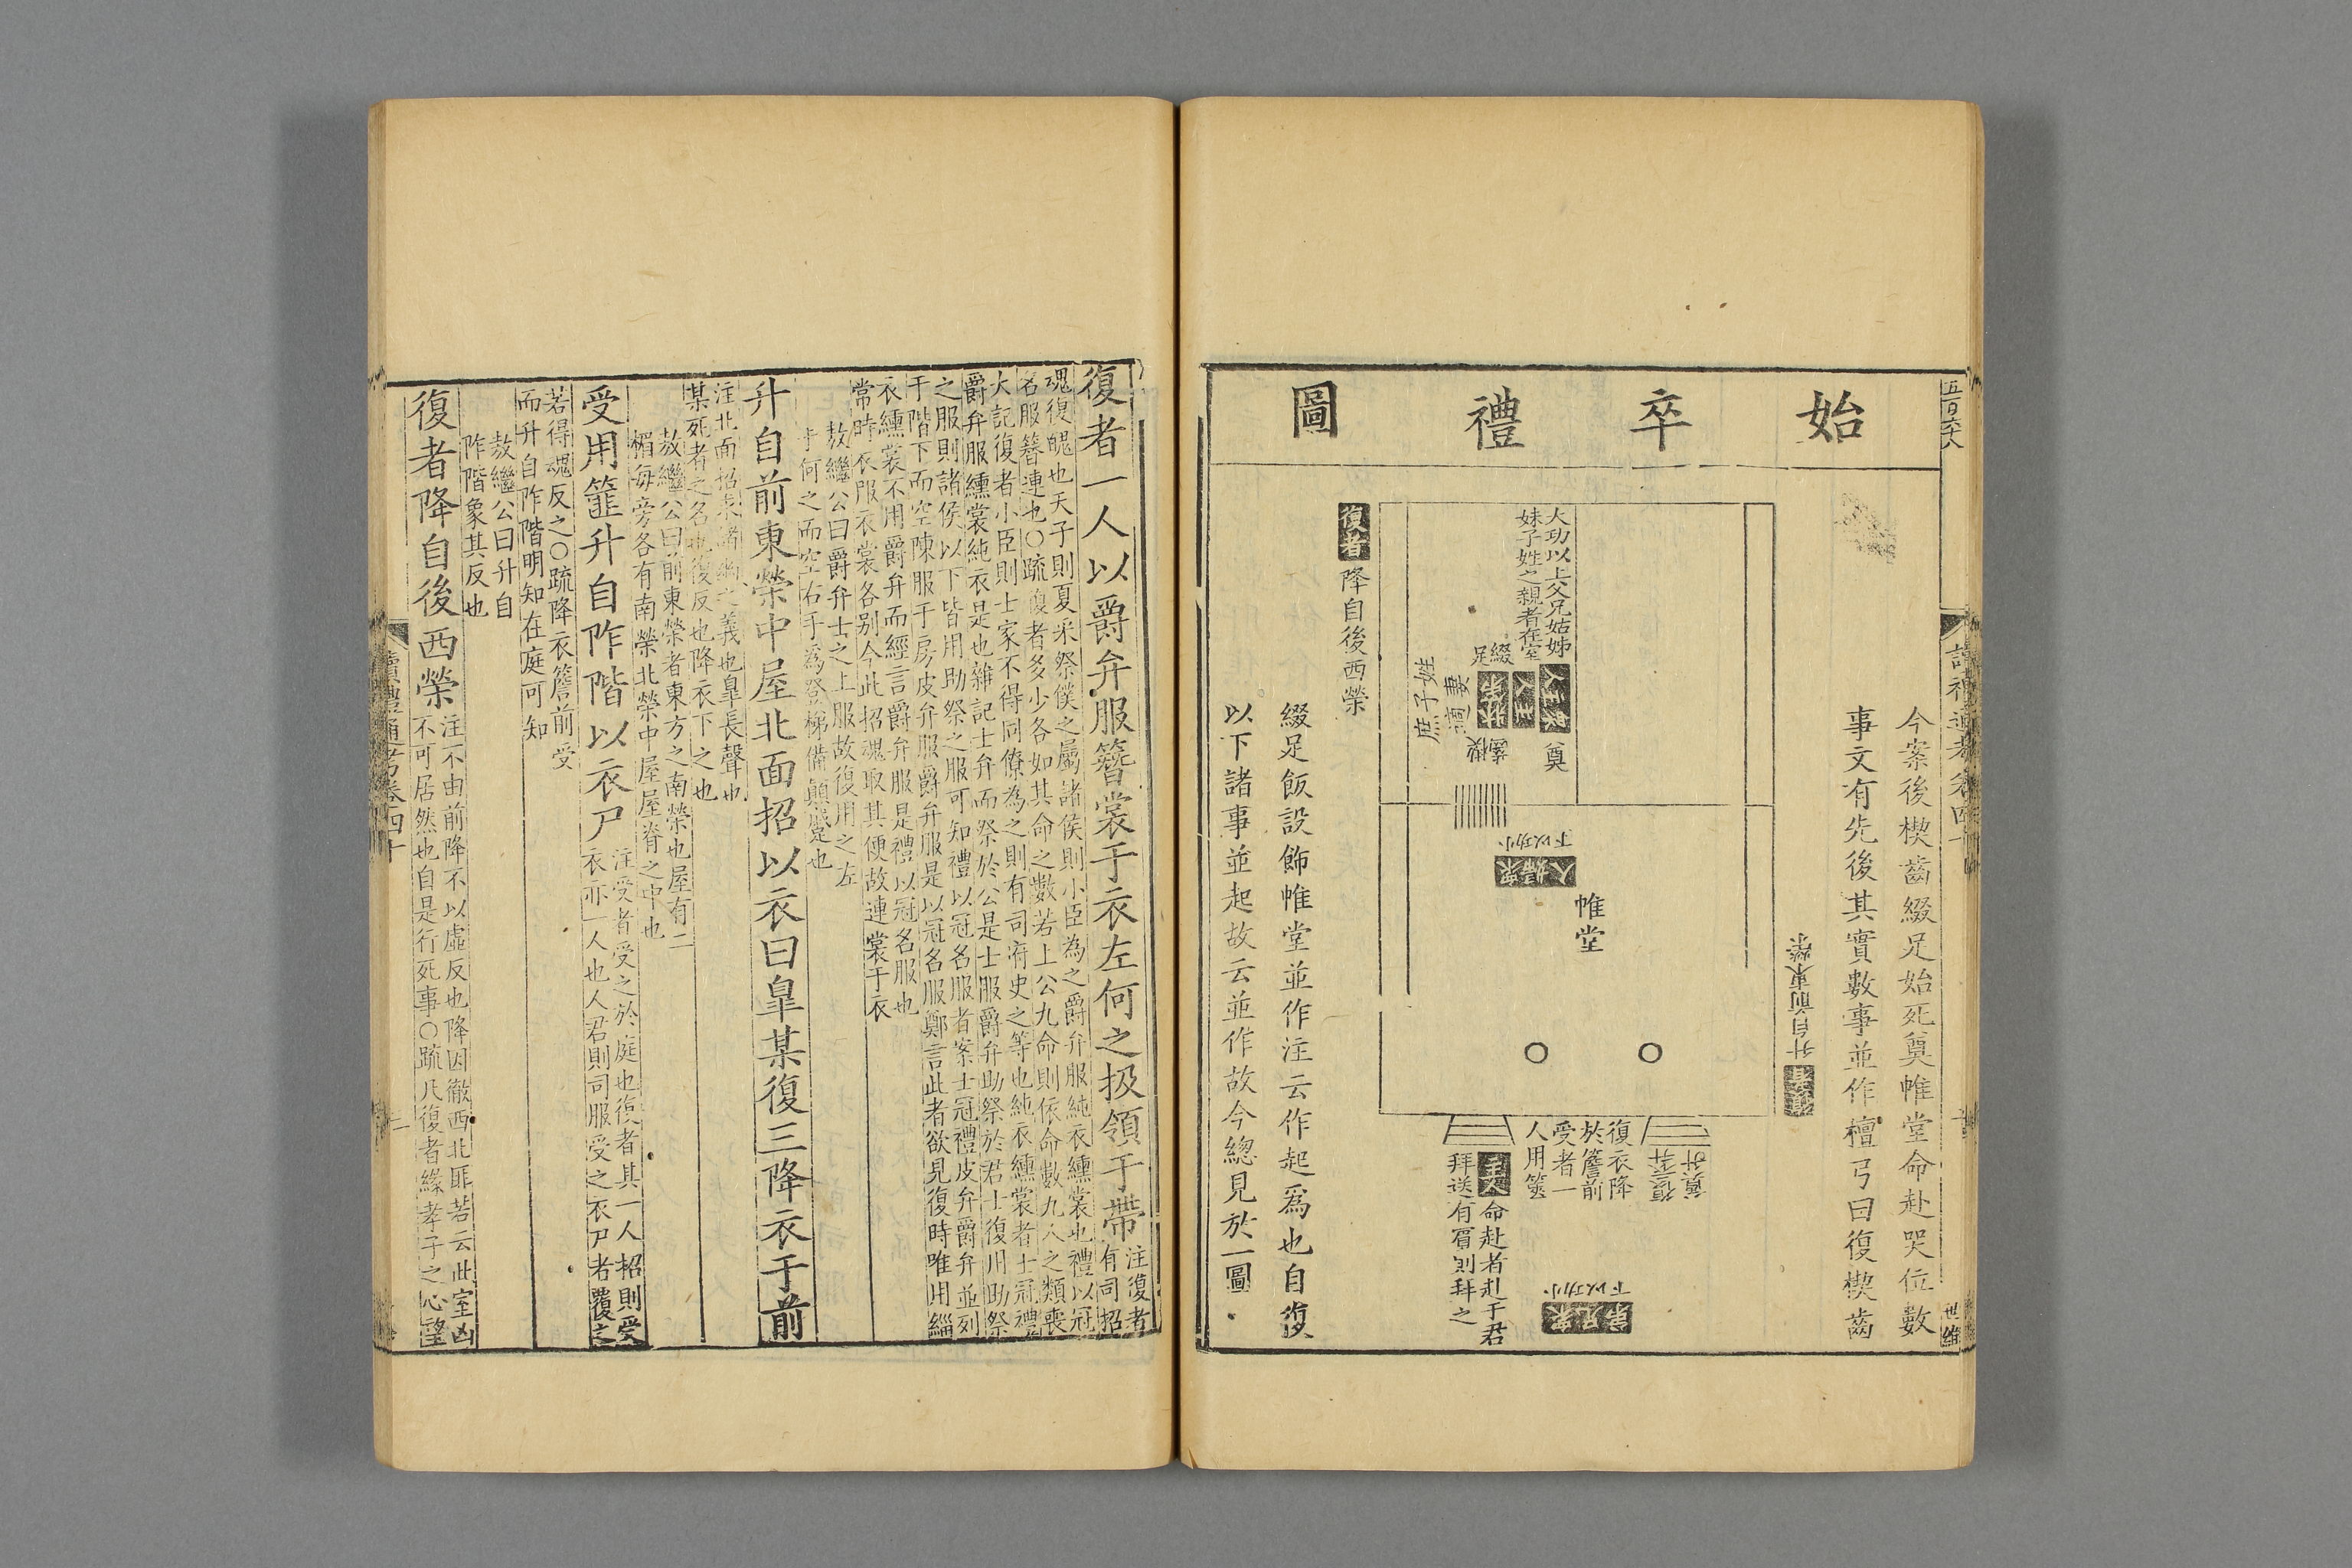 始卒禮圖
今案後楔齒綴足始死奠帷堂命赴哭位數
事文有先後其實數事並作檀弓曰復楔齒
升自前東榮
復者
奠升
復衣降
於簷前
受者一
人用篋
小功以下
衆兄弟
命赴者赴于君
拜送有賔則拜之
主人
帷堂
小功以下
衆婦人
大功以上父兄姑姊
妹子姓之親者在室
奠
主人
綴足
楔齒
妻
妾
庶子姓
復者降自後西榮
綴足飯設飾帷堂並作注云作起爲也自復
以下諸事並起故云並作故今總見於一圖
五百六十八
讀禮通考卷四十
世維
復者一人以爵弁服簪裳于衣左何之扱領于帶
注復者
有司招
魂復魄也天子則夏采祭僕之屬諸侯則小臣為之爵弁服純衣纁裳也禮以冠
名服簪連也○疏復者多少各如其命之數若上公九命則依命數九人之類喪
大記復者小臣則士家不得同僚為之則有司府史之等也純衣纁裳者士冠禮
爵弁服纁裳純衣是也雜記士弁而祭於公是士服爵弁助祭於君士復用助祭
之服則諸侯以下皆用助祭之服可知禮以冠名服者案士冠禮皮弁爵弁並列
于階下而空陳服于房皮弁服爵弁服是以冠名服鄭言此者欲見復時唯用緇
衣纁裳不用爵弁而經言爵弁服是禮以冠名服也
常時衣服衣裳各别今此招魂取其便故連裳于衣
敖繼公曰爵弁士之上服故復用之左
手何之而空右手為登梯備顚蹷也
升自前東榮中屋北面招以衣曰皐某復三降衣于前
注北面招求諸幽之義也皐長聲也
某死者之名也復反也降衣下之也
敖繼公曰前東榮者東方之南榮也屋有二
楣每旁各有南榮北榮中屋屋脊之中也
受用篚升自阼階以衣尸
注受者受之於庭也復者其一人招則受
衣亦一人也人君則司服受之衣尸者覆之
若得魂反之○疏降衣簷前受
而升自阼階明知在庭可知
敖繼公曰升自
阼階象其反也
復者降自後西榮
注不由前降不以虛反也降因徹西北厞若云此室凶
不可居然也自是行死事○疏凡復者緣孝子之心望
讀禮通考卷四十
二